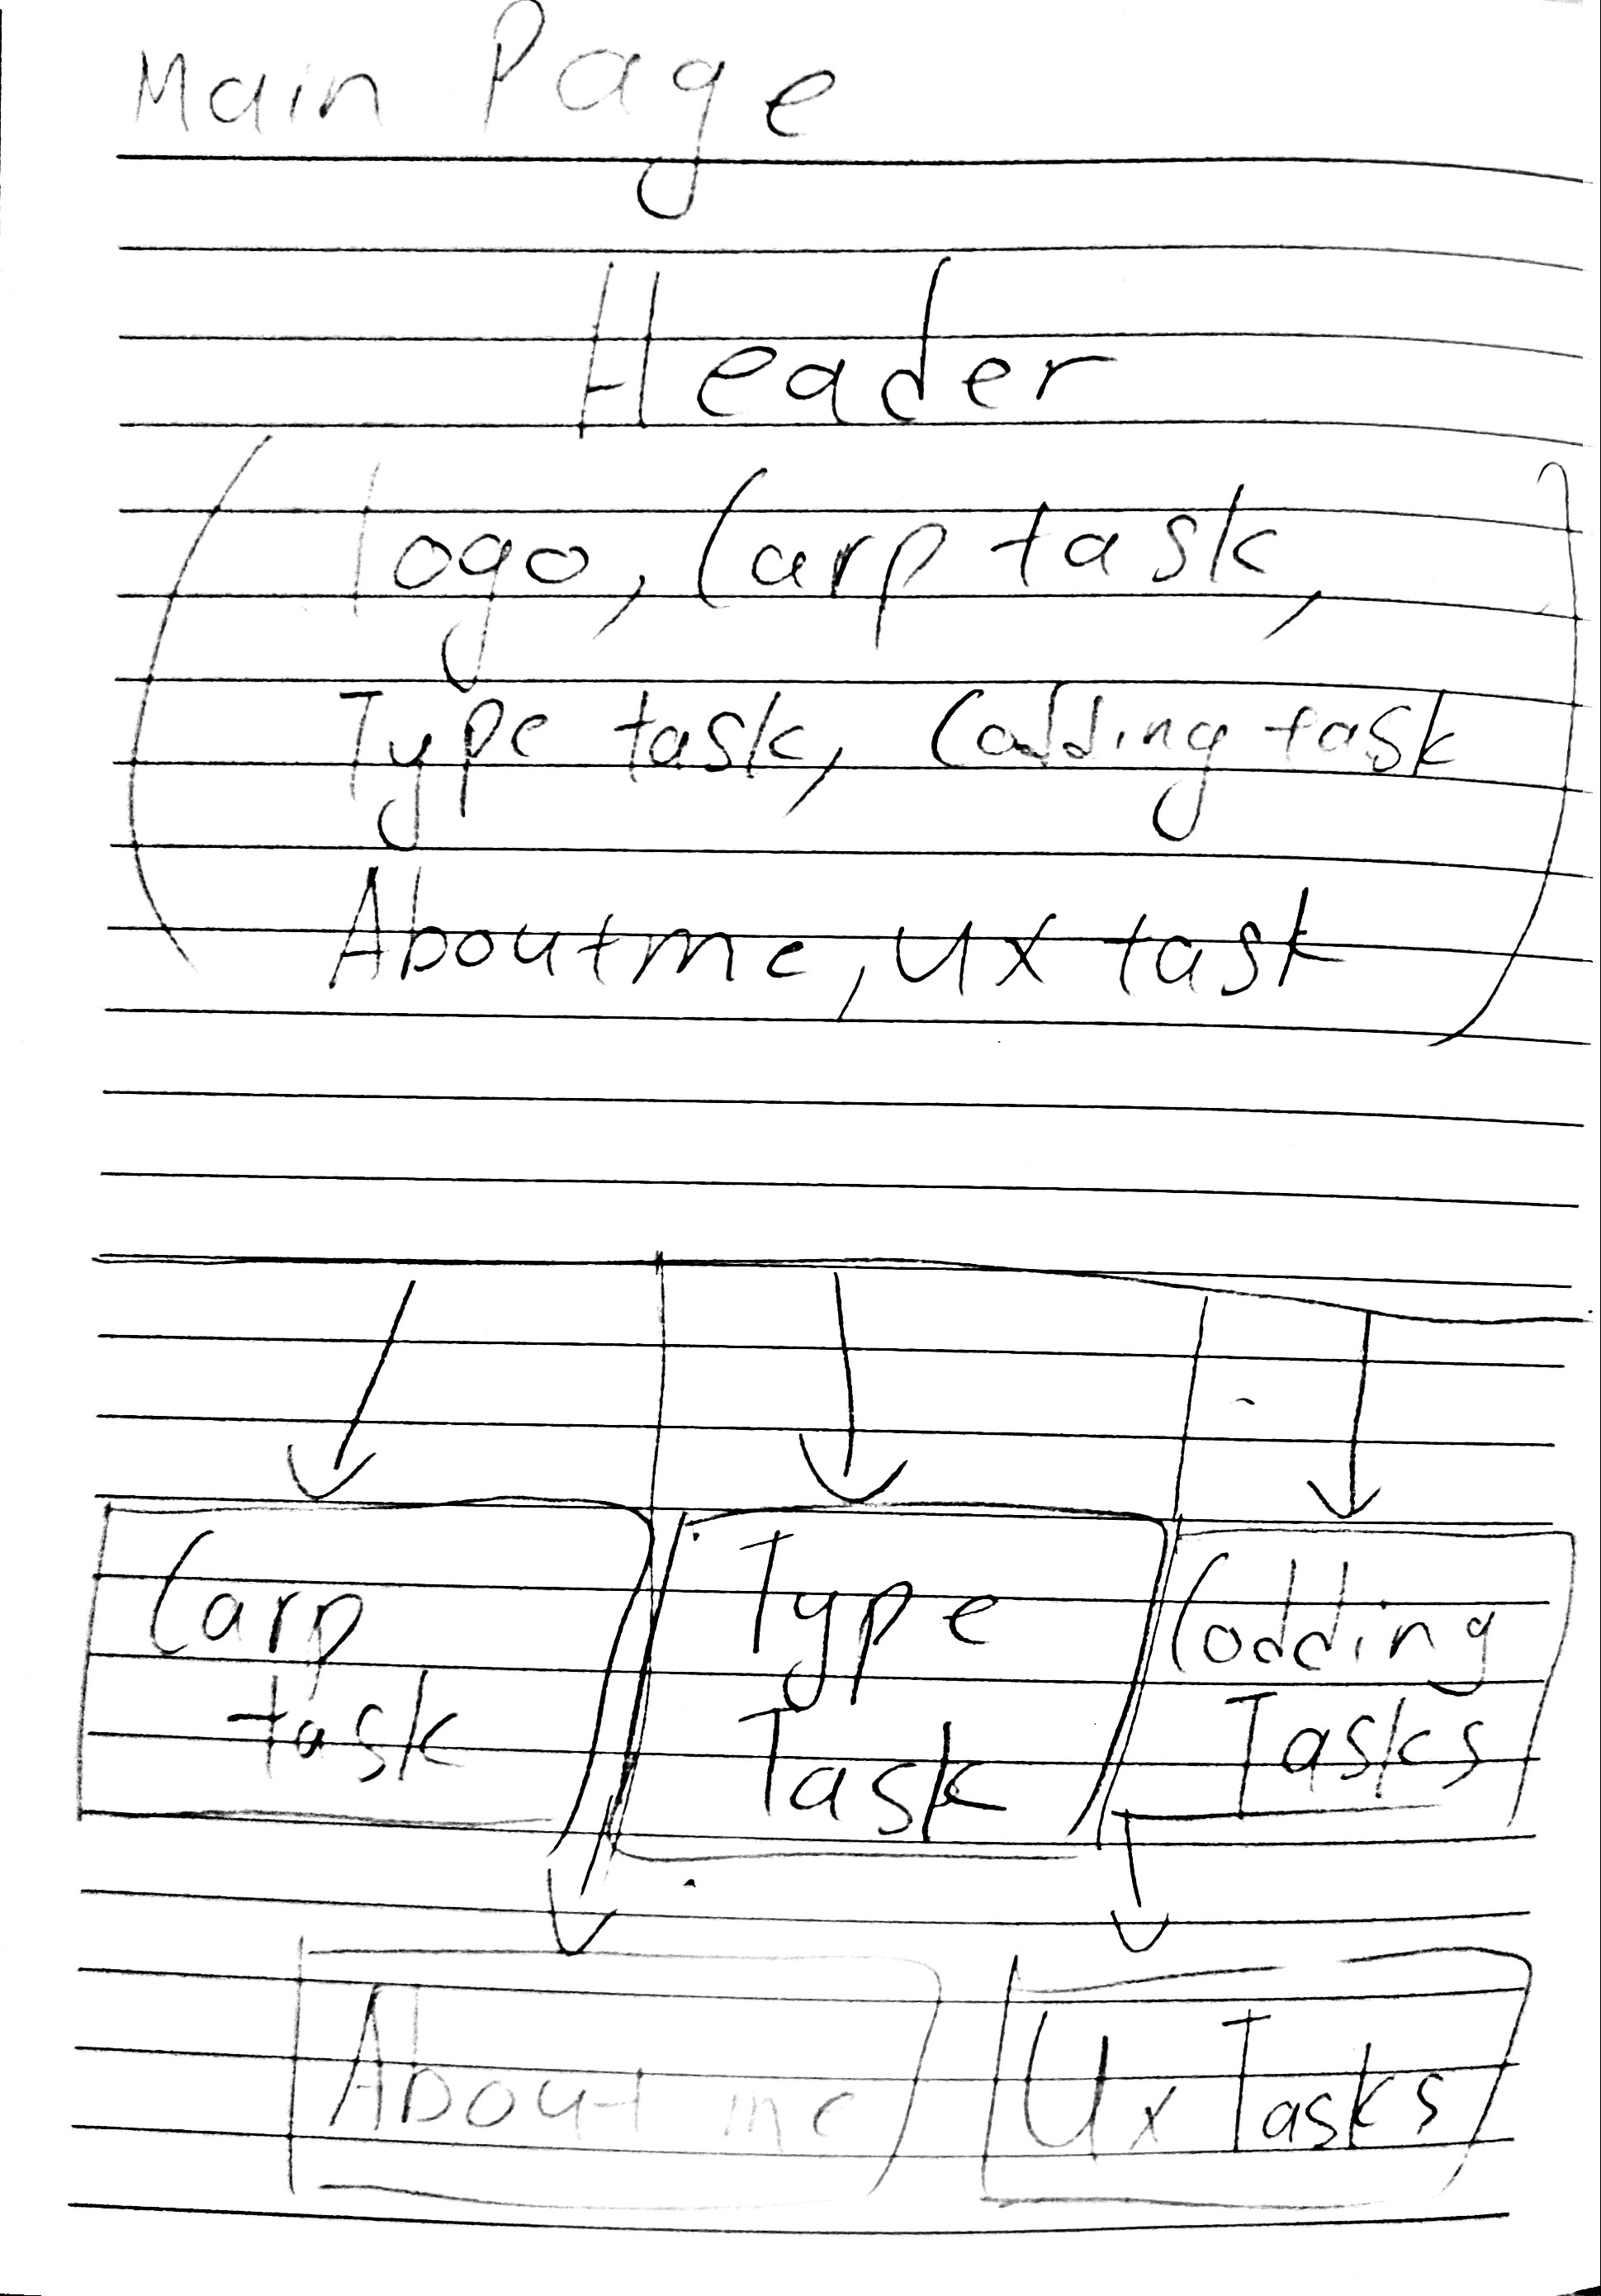 Main Page
Header
logo, Carp task,
Type task, Codding task
About me, Ux task
Carp
task
Type
Task
Codding
Tasks
About me
Ux Tasks